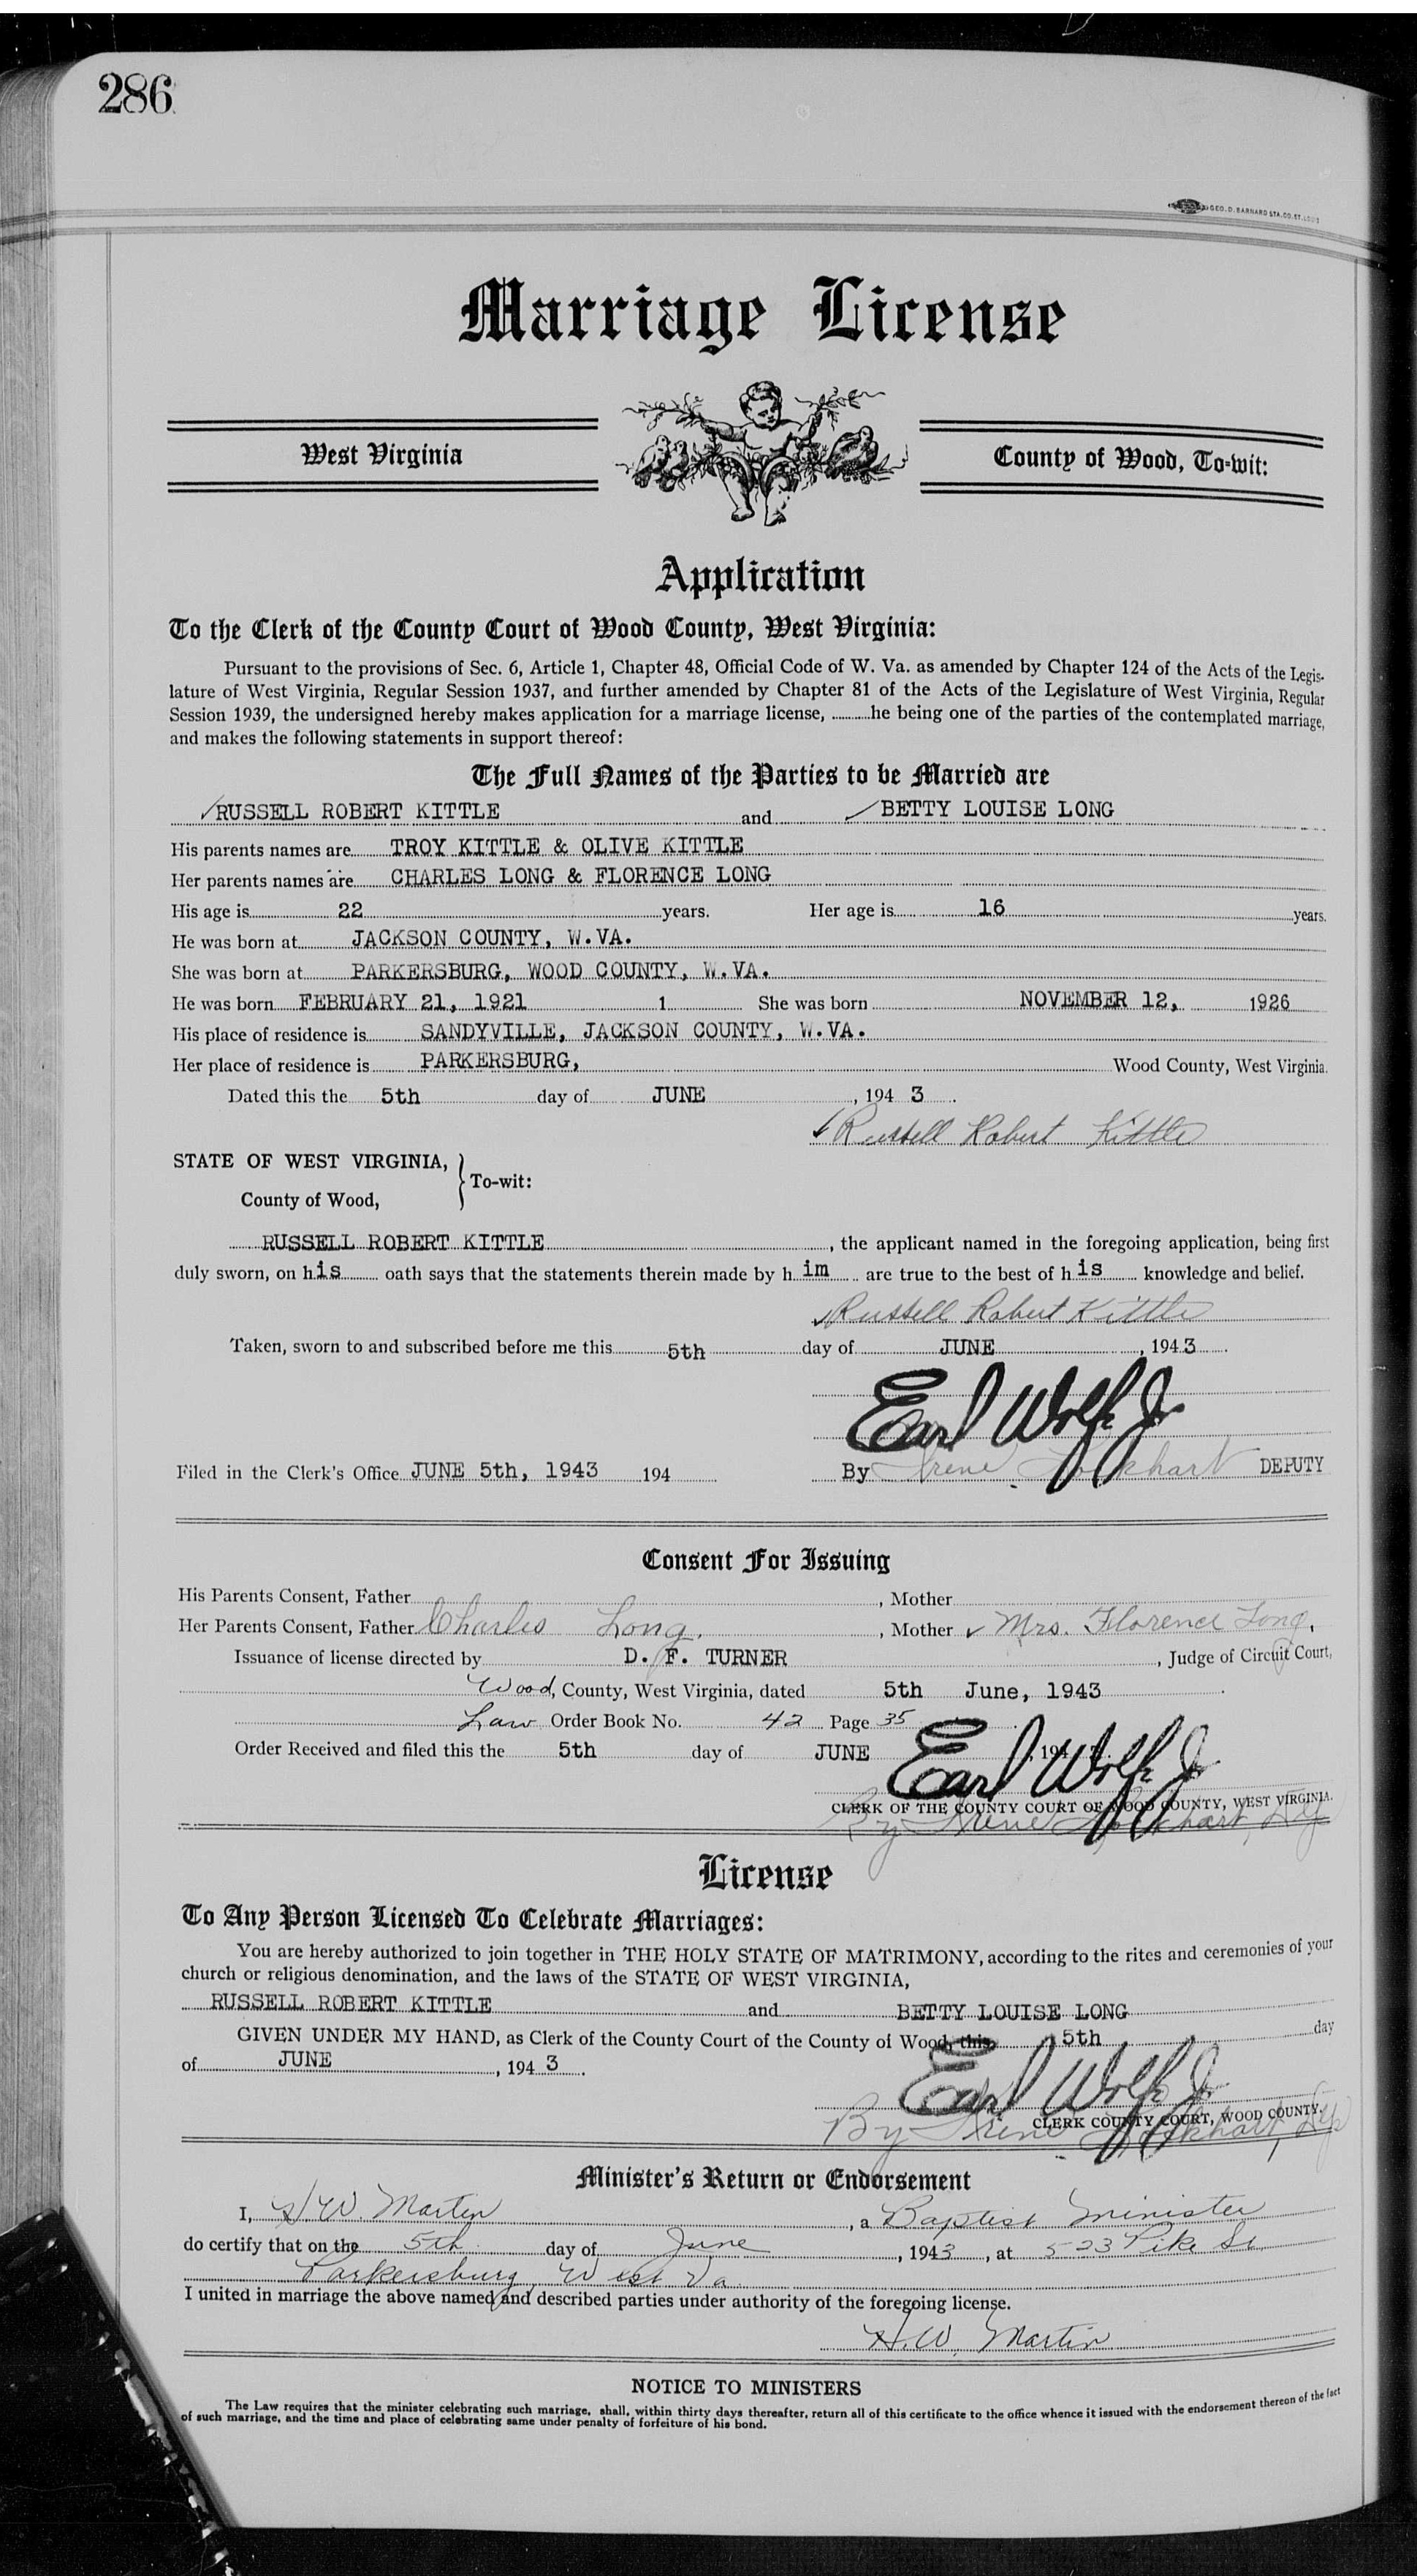 286
GEO. D. BARNARD STA. CO. ST. LOUIS
Marriage License
West Virginia
County of Wood, To-wit:
Application
To the Clerk of the County Court of Wood County, West Virginia:
Pursuant to the provisions of Sec. 6, Article 1, Chapter 48, Official Code of W. Va. as amended by Chapter 124 of the Acts of the Legis-
lature of West Virginia, Regular Session 1937, and further amended by Chapter 81 of the Acts of the Legislature of West Virginia, Regular
Session 1939, the undersigned hereby makes application for a marriage license, he being one of the parties of the contemplated marriage,
and makes the following statements in support thereof:
The Full Names of the Parties to be Married are
RUSSELL ROBERT KITTLE and BETTY LOUISE LONG
His parents names are TROY KITTLE & OLIVE KITTLE
Her parents names are CHARLES LONG & FLORENCE LONG
His age is 22 years. Her age is 16 years.
He was born at JACKSON COUNTY, W.VA.
She was born at PARKERSBURG, WOOD COUNTY, W.VA.
He was born FEBRUARY 21, 1921 1 She was born NOVEMBER 12, 1926
His place of residence is SANDYVILLE, JACKSON COUNTY, W.VA.
Her place of residence is PARKERSBURG, Wood County, West Virginia.
Dated this the 5th day of JUNE, 194 3.
Russell Robert Kittle
STATE OF WEST VIRGINIA,
To-wit:
County of Wood,
RUSSELL ROBERT KITTLE, the applicant named in the foregoing application, being first
duly sworn, on his oath says that the statements therein made by him are true to the best of his knowledge and belief.
Russell Robert Kittle
Taken, sworn to and subscribed before me this 5th day of JUNE, 194 3.
Earl Wolfe Jr
Filed in the Clerk's Office JUNE 5th, 1943 194 By Irene Lockhart DEPUTY
Consent For Issuing
His Parents Consent, Father , Mother
Her Parents Consent, Father Charles Long. , Mother Mrs. Florence Long.
Issuance of license directed by D. F. TURNER , Judge of Circuit Court,
Wood, County, West Virginia, dated 5th June, 1943.
Law Order Book No. 42 Page 35.
Order Received and filed this the 5th day of JUNE, 194
Earl Wolfe Jr
CLERK OF THE COUNTY COURT OF WOOD COUNTY, WEST VIRGINIA.
By Irene Lockhart, Dep
License
To Any Person Licensed To Celebrate Marriages:
You are hereby authorized to join together in THE HOLY STATE OF MATRIMONY, according to the rites and ceremonies of your
church or religious denomination, and the laws of the STATE OF WEST VIRGINIA,
RUSSELL ROBERT KITTLE and BETTY LOUISE LONG
GIVEN UNDER MY HAND, as Clerk of the County Court of the County of Wood, this 5th day
of JUNE, 194 3.
Earl Wolfe Jr
CLERK COUNTY COURT, WOOD COUNTY.
By Irene Lockhart, Dep
Minister's Return or Endorsement
I, H W. Martin, a Baptist minister
do certify that on the 5th day of June, 1943, at 523 Pike St.
Parkersburg West Va.
I united in marriage the above named and described parties under authority of the foregoing license.
H. W. Martin
NOTICE TO MINISTERS
The Law requires that the minister celebrating such marriage, shall, within thirty days thereafter, return all of this certificate to the office whence it issued with the endorsement thereon of the fact
of such marriage, and the time and place of celebrating same under penalty of forfeiture of his bond.